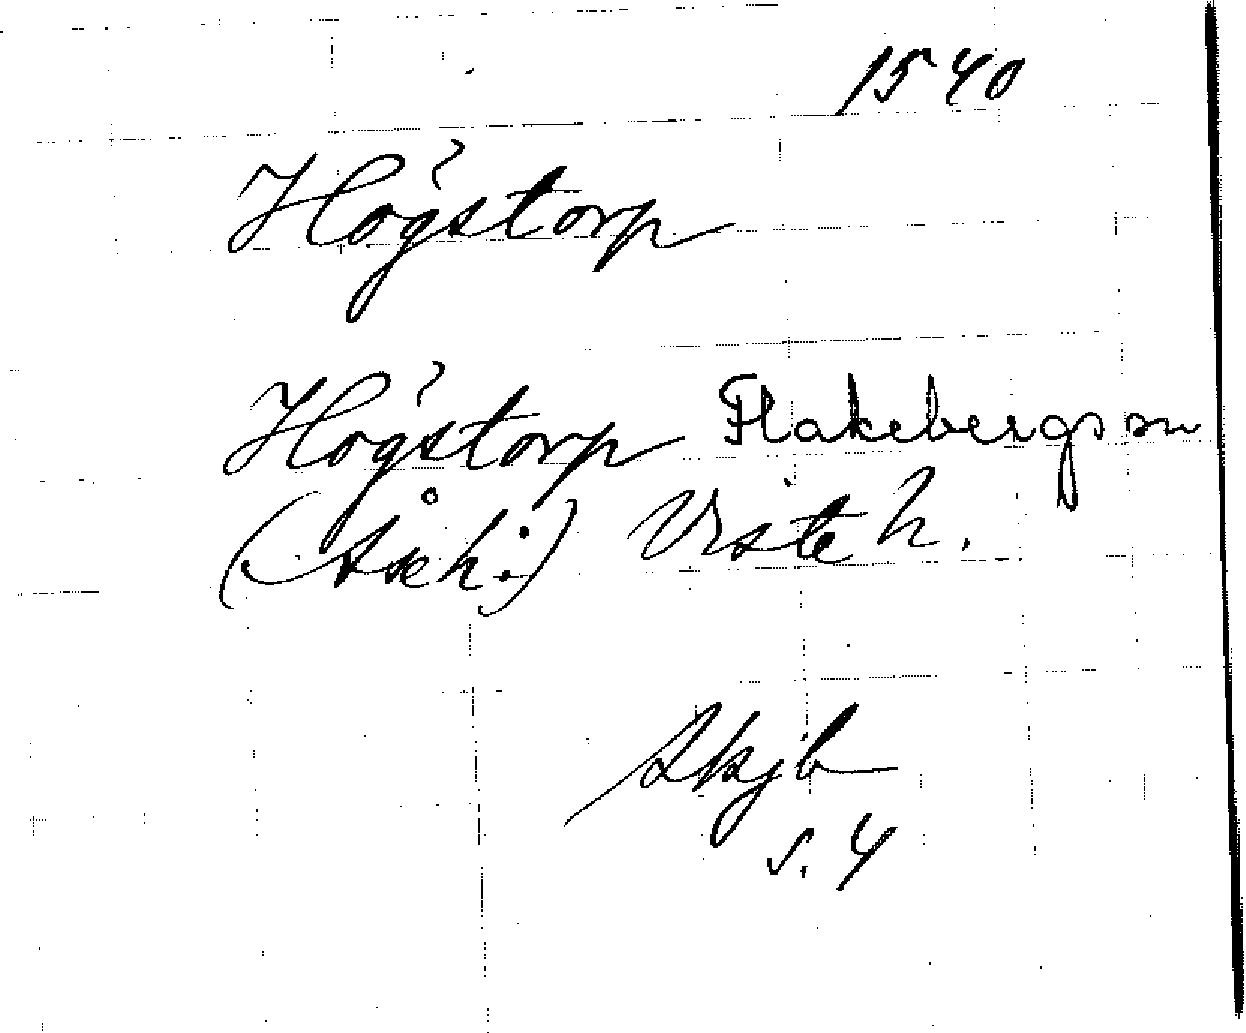 1540
Högstorp
Högstorp Flakebergs sn
(Åse h.) Viste h.
Skjb
s. 4